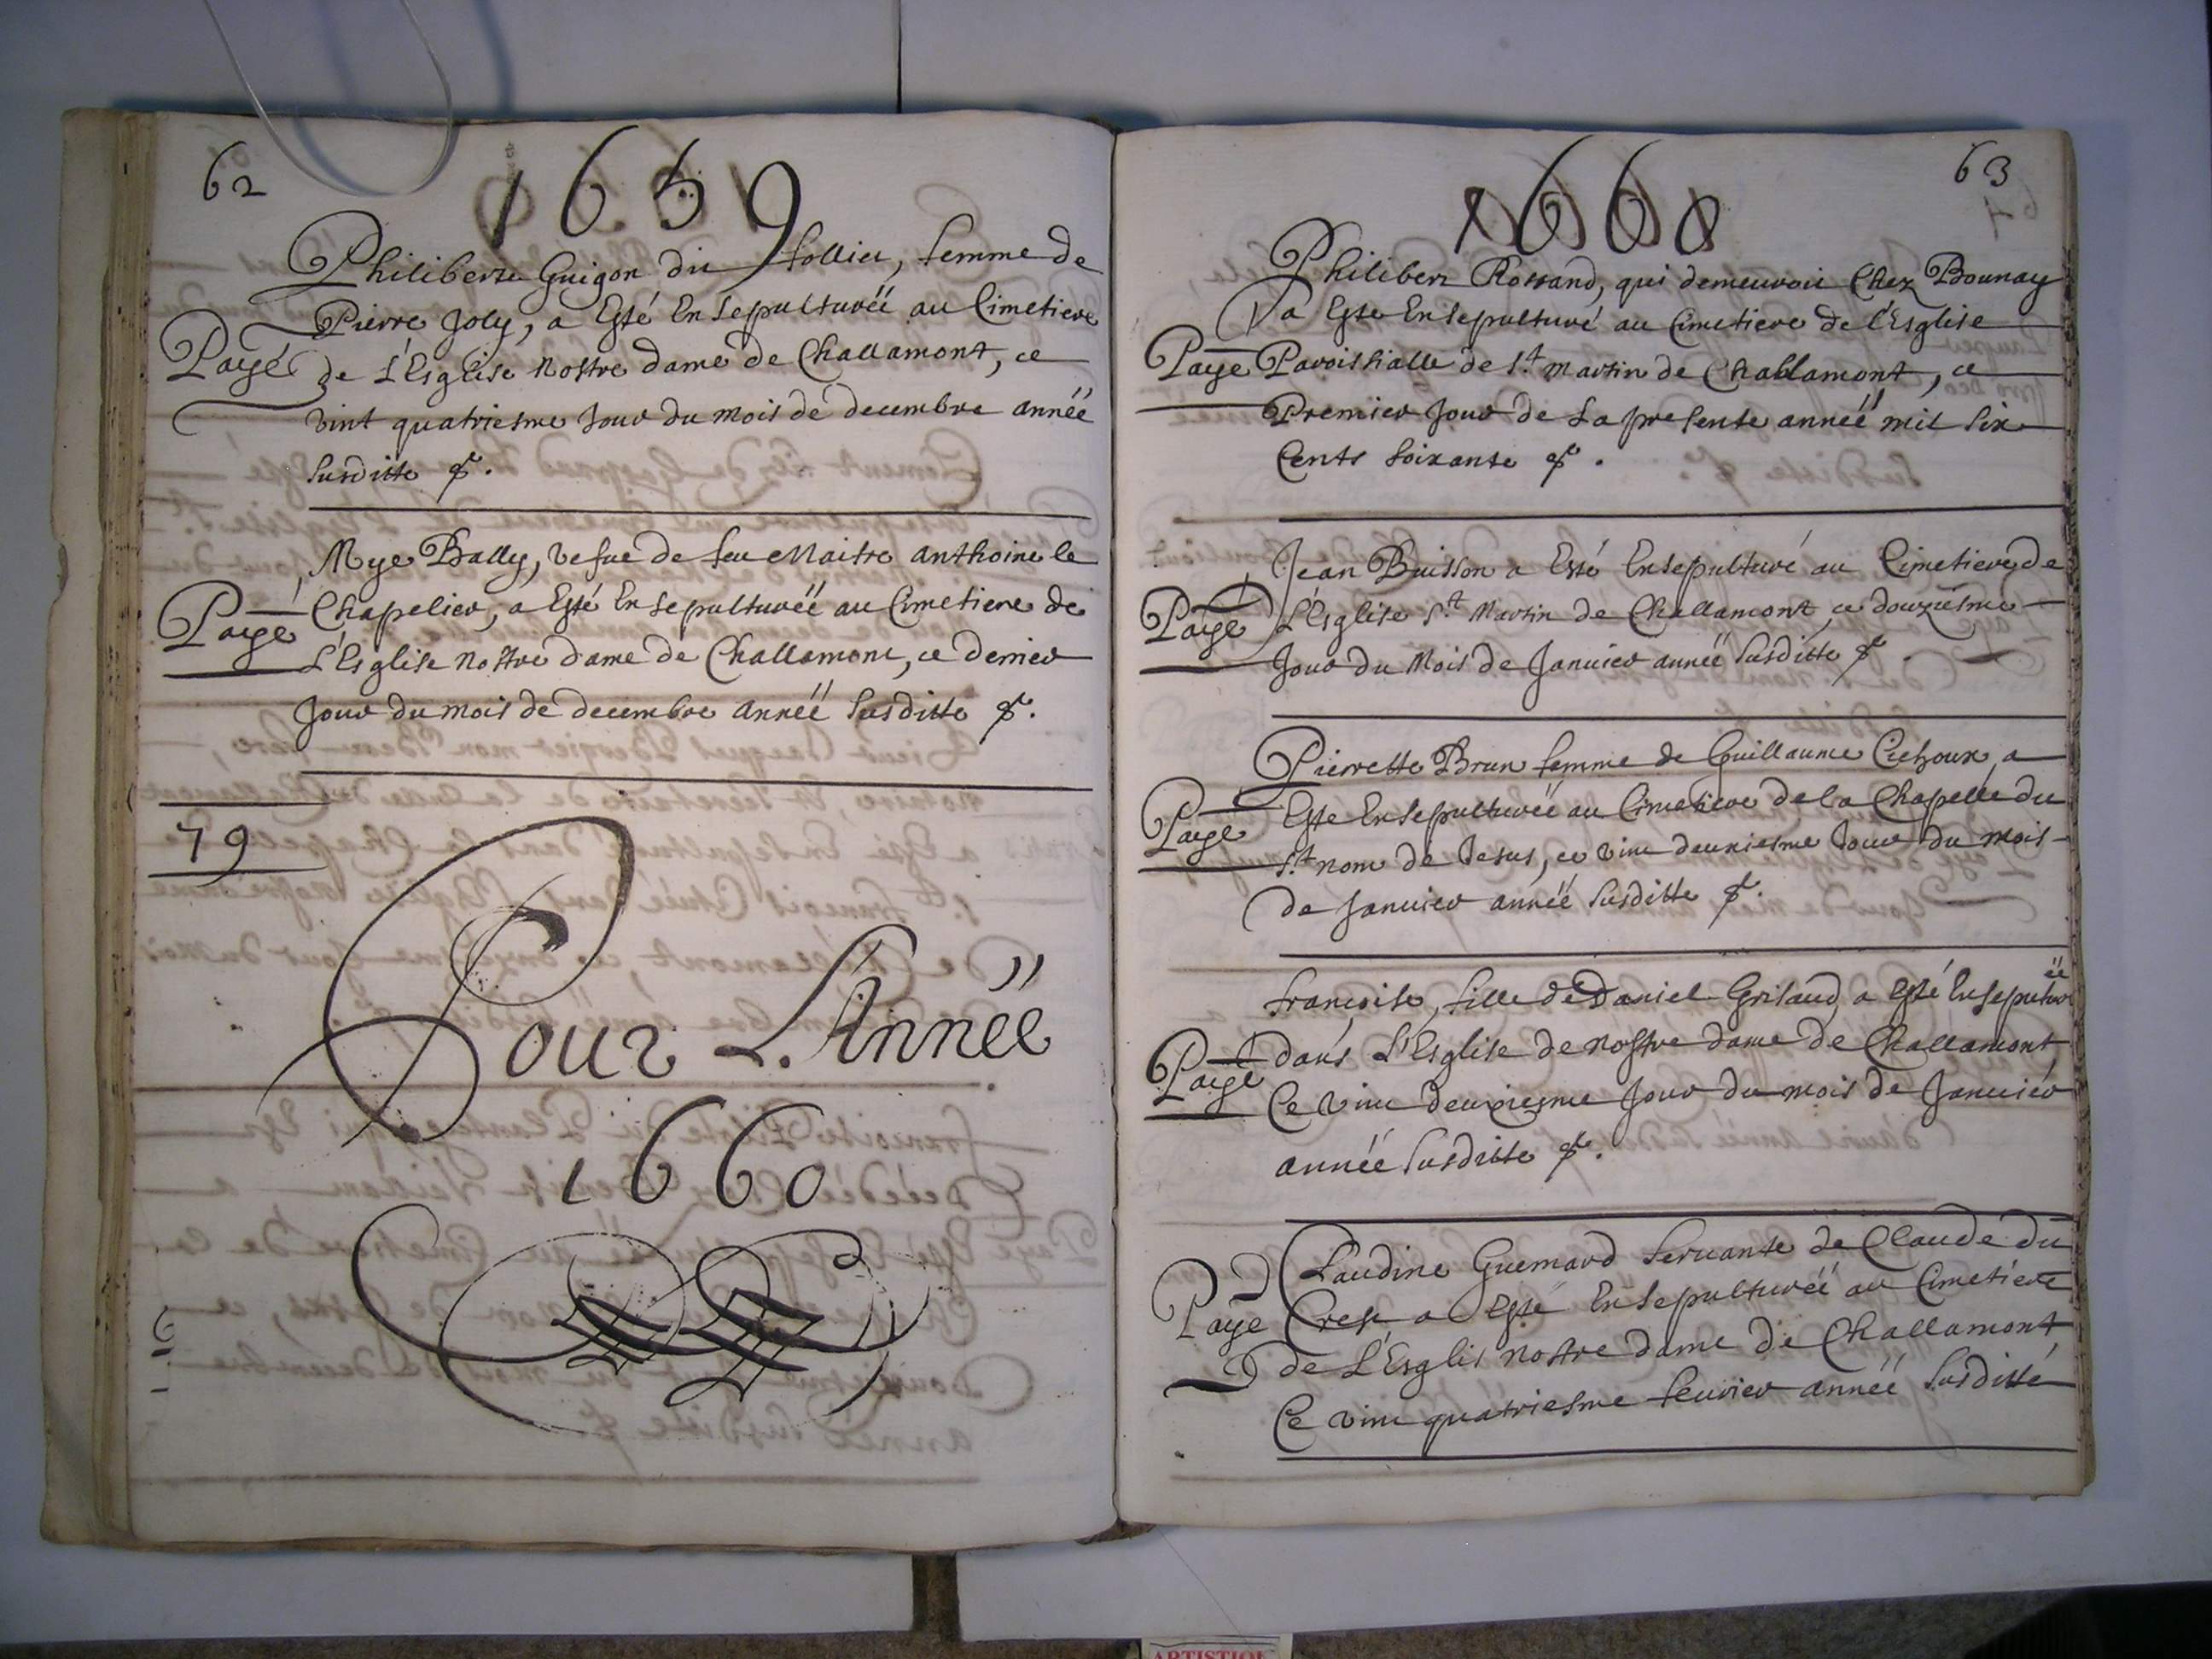 62
1659
Philiberte Guigon du follier, femme de
Pierre Joly, a Esté Ensepulturéé au Cimetiere
Payé de L'Esglise nostre dame de Challamont, ce
vint quatriesme Jour du mois de decembre année
susditte &c.
Mye Bally, vefue de feu Maitre anthoine le
Chapelier, a Esté Ensepulturéé au Cimetiere de
Payé L'Esglise nostre dame de Challamont, ce dernier
Jour du mois de decembre année susditte &c.
79
Pour L'Année
1660
63
1660
Philibert Rossand, qui demeuroit Chez Bounay
a Este Ensepulturé au Cimetiere de l'Esglise
Paye Paroissialle de St. martin de Challamont, ce
Premier Jour de la presente année mil six
Cents soixante &c.
Jean Buisson a Esté Ensepulturé au Cimetiere de
Payé L'Esglise St. Martin de Challamont, ce douziesme
Jour du Mois de Januier année susditte &c.
Pierrette Brun femme de Guillaume, a
Payé Este Ensepulturéé au Cimetiere de la Chapelle du
St. nom de Jesus, ce vint deuxiesme Jour du mois
de Januier année susditte &c.
françoise, fille de Daniel Grisaud, a Esté Ensepulturéé
Payé dans L'Esglise de nostre dame de Challamont
Ce vint deuxiesme Jour du mois de Januier
année susditte &c.
Claudine Guemard seruante de Claude du
Payé Crest a Esté Ensepulturéé au Cimetiere
de L'Esglis nostre dame de Challamont
Ce vint quatriesme feurier année susditté
ARTISTIQU